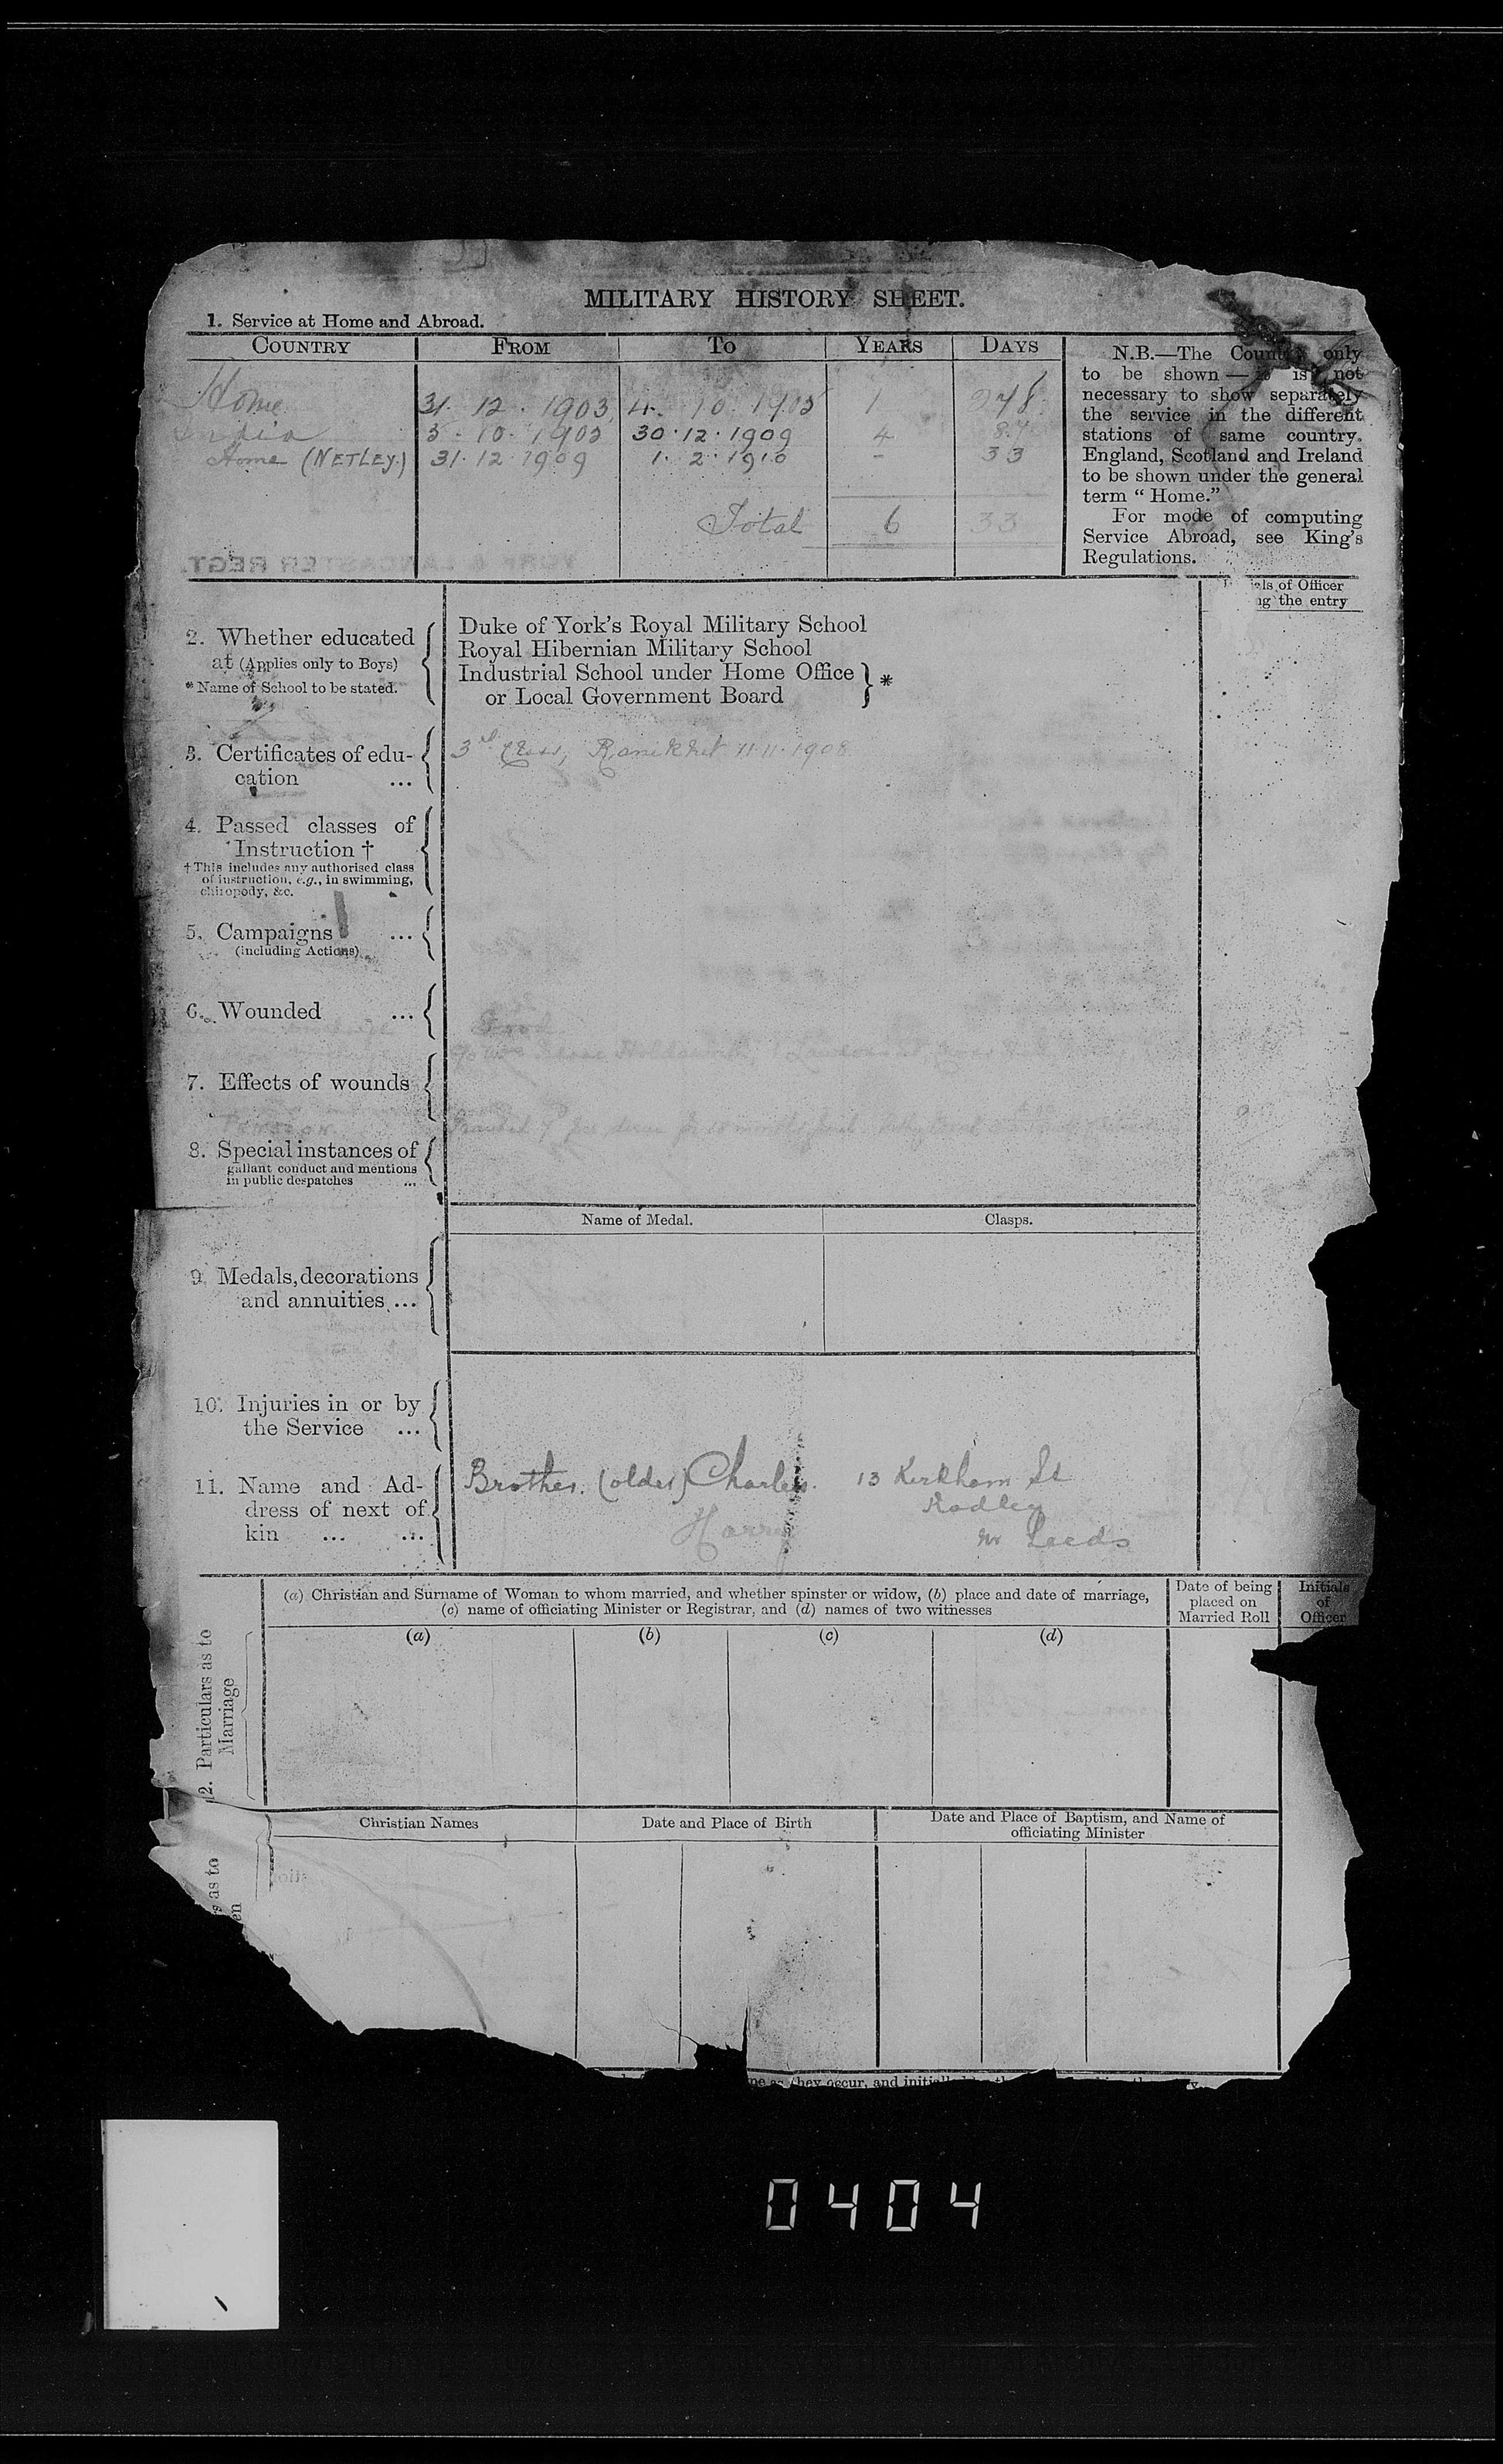 MILITARY HISTORY SHEET.
1. Service at Home and Abroad.
COUNTRY FROM To YEARS DAYS
Home 31. 12. 1903 4. 10. 1905 1 278
India 5. 10. 1905 30. 12. 1909 4 87
Home (NETLEY.) 31. 12 1909 1. 2. 1910 - 33
Total 6 33
N.B.—The Country only
to be shown — it is not
necessary to show separately
the service in the different
stations of same country.
England, Scotland and Ireland
to be shown under the general
term “ Home.”
For mode of computing
Service Abroad, see King's
Regulations.
YORK & LANCASTER REGT.
of Officer
the entry
2. Whether educated
at (Applies only to Boys)
* Name of School to be stated.
Duke of York's Royal Military School
Royal Hibernian Military School
Industrial School under Home Office
or Local Government Board } *
3. Certificates of edu-
cation ...
3rd Class, Ranikhet 11. 11. 1908
4. Passed classes of
Instruction †
† This includes any authorised class
of instruction, e.g., in swimming,
chiropody, &c.
5. Campaigns ...
(including Actions)
6. Wounded ...
7. Effects of wounds
8. Special instances of
gallant conduct and mentions
in public despatches ...
Name of Medal. Clasps.
9. Medals, decorations
and annuities ...
10. Injuries in or by
the Service ...
11. Name and Ad-
dress of next of
kin ... ...
Brother. (older) Charles. 13 Kirkham St
Harry Rodley
Nr Leeds
2. Particulars as to
Marriage
(a) Christian and Surname of Woman to whom married, and whether spinster or widow, (b) place and date of marriage,
(c) name of officiating Minister or Registrar, and (d) names of two witnesses
Date of being
placed on
Married Roll
Initials
of
Officer
(a) (b) (c) (d)
as to
en
Christian Names Date and Place of Birth Date and Place of Baptism, and Name of
officiating Minister
as they occur, and
0404